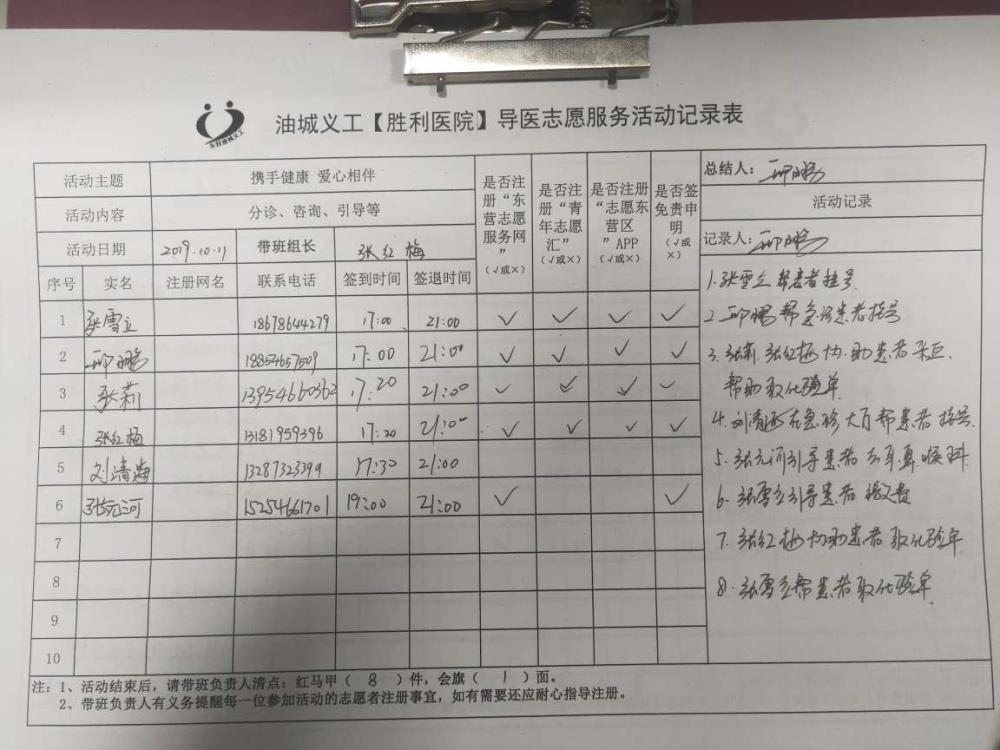 油城义工【胜利医院】导医志愿服务活动记录表
东营油城义工
活动主题 携手健康 爱心相伴
活动内容 分诊、咨询、引导等
活动日期 2019.10.11 带班组长 张红梅
序号 实名 注册网名 联系电话 签到时间 签退时间
是否注册“东营志愿服务网” (√或×)
是否注册“青年志愿汇” (√或×)
是否注册“志愿东营区”APP (√或×)
是否签免责申明 (√或×)
1 张雪立 18678644279 17:00 21:00 √ √ √ √
2 邱鹏 18854657509 17:00 21:00 √ √ √ √
3 张莉 13954660362 17:20 21:00 √ √ √ √
4 张红梅 13181959396 17:20 21:00 √ √ √ √
5 刘清海 13287323399 17:30 21:00
6 张元河 15254661701 19:00 21:00 √ √
7
8
9
10
总结人：邱鹏
活动记录
记录人：邱鹏
1.张雪立帮患者挂号.
2.邱鹏帮急诊患者挂号
3.张莉.张红梅协助患者采血.
帮助取化验单.
4.刘清海在急诊大厅帮患者挂号.
5.张元河引导患者去耳鼻喉科.
6.张雪立引导患者缴费
7.张红梅协助患者取化验单
8.张雪立帮患者取化验单.
注：1、活动结束后，请带班负责人清点：红马甲（ 8 ）件，会旗（ 1 ）面。
2、带班负责人有义务提醒每一位参加活动的志愿者注册事宜，如有需要还应耐心指导注册。